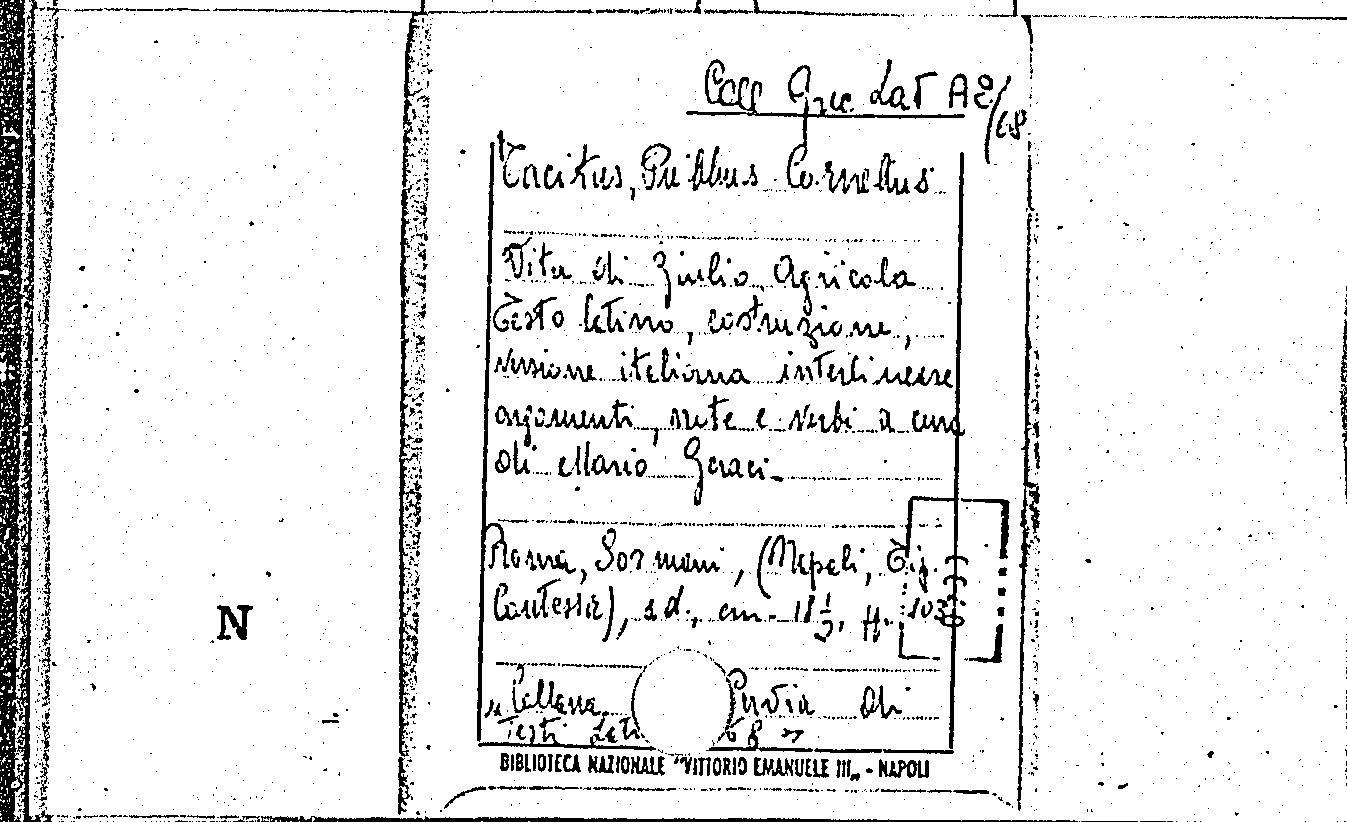 Coll Gree Lat A2/68
Tacitus, Publius Cornelius
Vita di Giulio Agricola
Testo latino, costruzione,
versione italiana interlineare
argomenti, note e verbi a cura
di Mario Geraci.
Roma, Sormani, (Napoli, Tip.
Contessa), s.d., cm.
"Collana Pervia di
Testi Lati 68"
N
BIBLIOTECA NAZIONALE "VITTORIO EMANUELE III" - NAPOLI